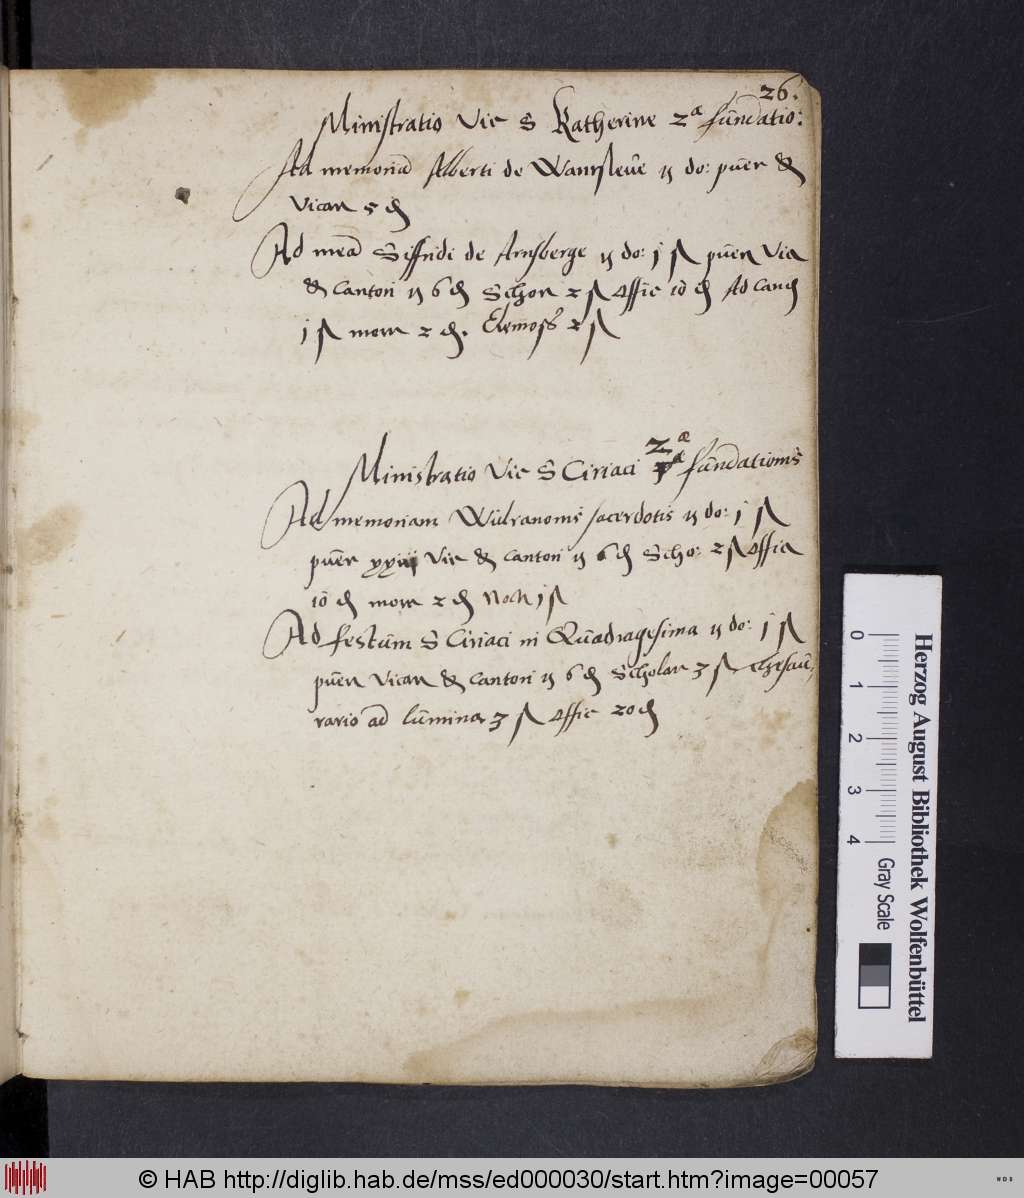 26.
Ministratio Vic S Katherine 2ª fundatio:
Ad memoriã Alberti de Wantsleue ij do: puer &
Vicar 5 d
Ad meã Siffridi de Arnsberge ij do: j ß puer Vic
& Cantori ij 6 d Schor 2 ß Offic 10 d Ad Cand
j ß more 2 d. Elemos 2 ß
Ministratio Vic S Ciriaci 2æ fundationis
Ad memoriam Wulranomis sacerdotis ij do: j ß
puer xxiiij Vic & cantori ij 6 d Scho: 2 ß Offic
10 d more 2 d Noch j ß
Ad festum S Ciriaci in Quadragesima ij do: j ß
puer Vicar & cantori ij 6 d Scholar 3 ß thesau,
rario ad lumina 3 ß Offic 20 d
Herzog August Bibliothek Wolfenbüttel
0 1 2 3 4 Gray Scale
© HAB http://diglib.hab.de/mss/ed000030/start.htm?image=00057